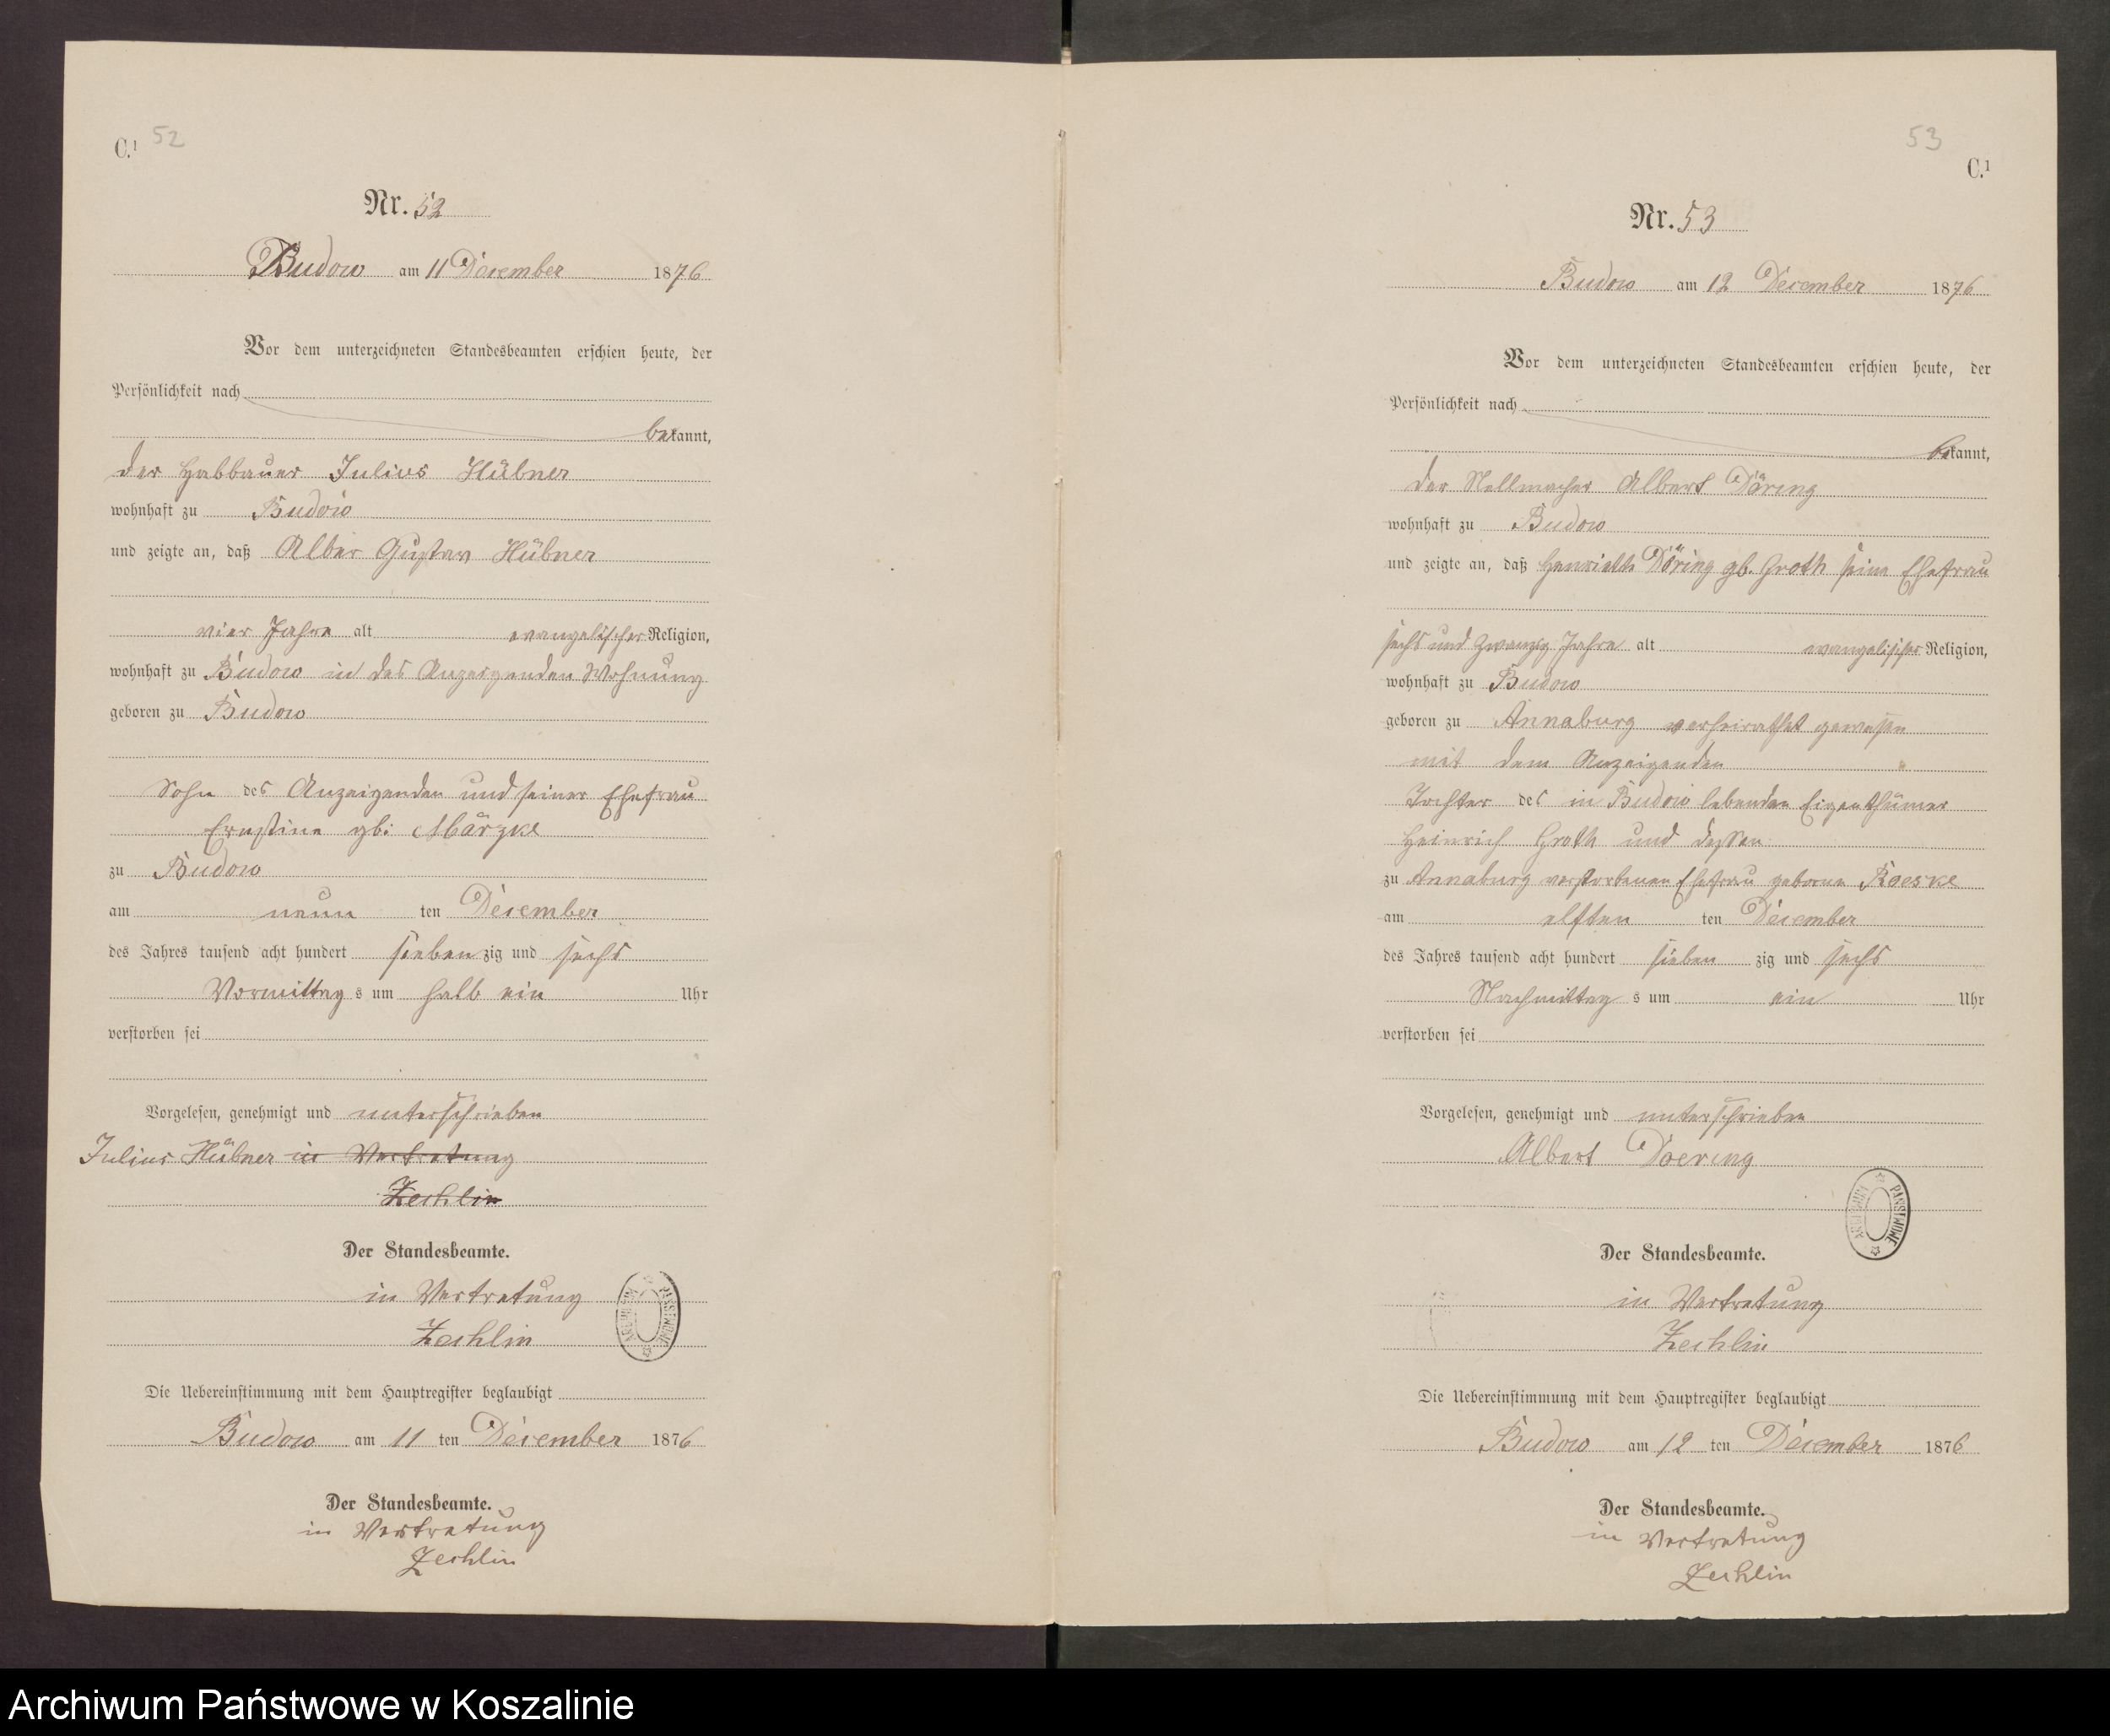 C.1 52
Nr. 52
Budow am 11 December 1876
Vor dem unterzeichneten Standesbeamten erschien heute, der
Persönlichkeit nach
bekannt,
der Halbbauer Julius Hübner
wohnhaft zu Budow
und zeigte an, daß Albert Gustav Hübner
vier Jahre alt evangelischer Religion,
wohnhaft zu Budow in des Anzeigenden Wohnung
geboren zu Budow
Sohn des Anzeigenden und seiner Ehefrau
Ernstine gb: Märzke
zu Budow
am neun ten December
des Jahres tausend acht hundert sieben zig und sechs
Vormittag s um halb ein Uhr
verstorben sei
Vorgelesen, genehmigt und unterschrieben
Julius Hübner in Vertretung
Zechlin
Der Standesbeamte.
in Vertretung
Zechlin
ARCHIWUM PAŃSTWOWE
Die Uebereinstimmung mit dem Hauptregister beglaubigt
Budow am 11 ten December 1876
Der Standesbeamte.
in Vertretung
Zechlin
53
C.1
Nr. 53
Budow am 12 December 1876
Vor dem unterzeichneten Standesbeamten erschien heute, der
Persönlichkeit nach
bekannt,
der Stellmacher Albert Döring
wohnhaft zu Budow
und zeigte an, daß Henriette Döring gb. Groth seine Ehefrau
sechs und zwanzig Jahre alt evangelischer Religion,
wohnhaft zu Budow
geboren zu Annaburg verheirathet gewesen
mit dem Anzeigenden
Tochter des in Budow lebenden Eigenthümer
Heinrich Groth und dessen
zu Annaburg verstorbenen Ehefrau geborne Roeske
am elften ten December
des Jahres tausend acht hundert sieben zig und sechs
Nachmittag s um ein Uhr
verstorben sei
Vorgelesen, genehmigt und unterschrieben
Albert Doering
ARCHIWUM PAŃSTWOWE
Der Standesbeamte.
in Vertretung
Zechlin
Die Uebereinstimmung mit dem Hauptregister beglaubigt
Budow am 12 ten December 1876
Der Standesbeamte.
in Vertretung
Zechlin
Archiwum Państwowe w Koszalinie